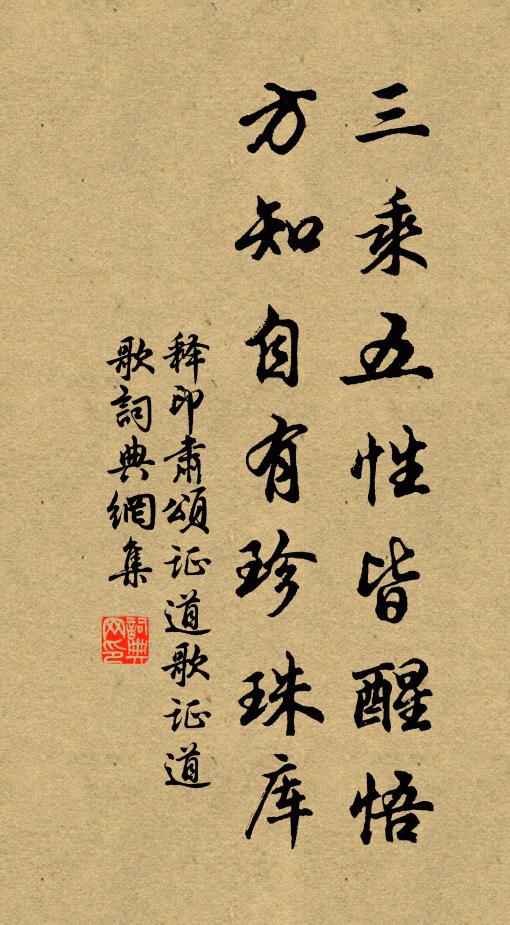 三乘五性皆醒悟
方知自有珍珠库
释印肃颂证道歌证道
歌詞典網集
詞典网印